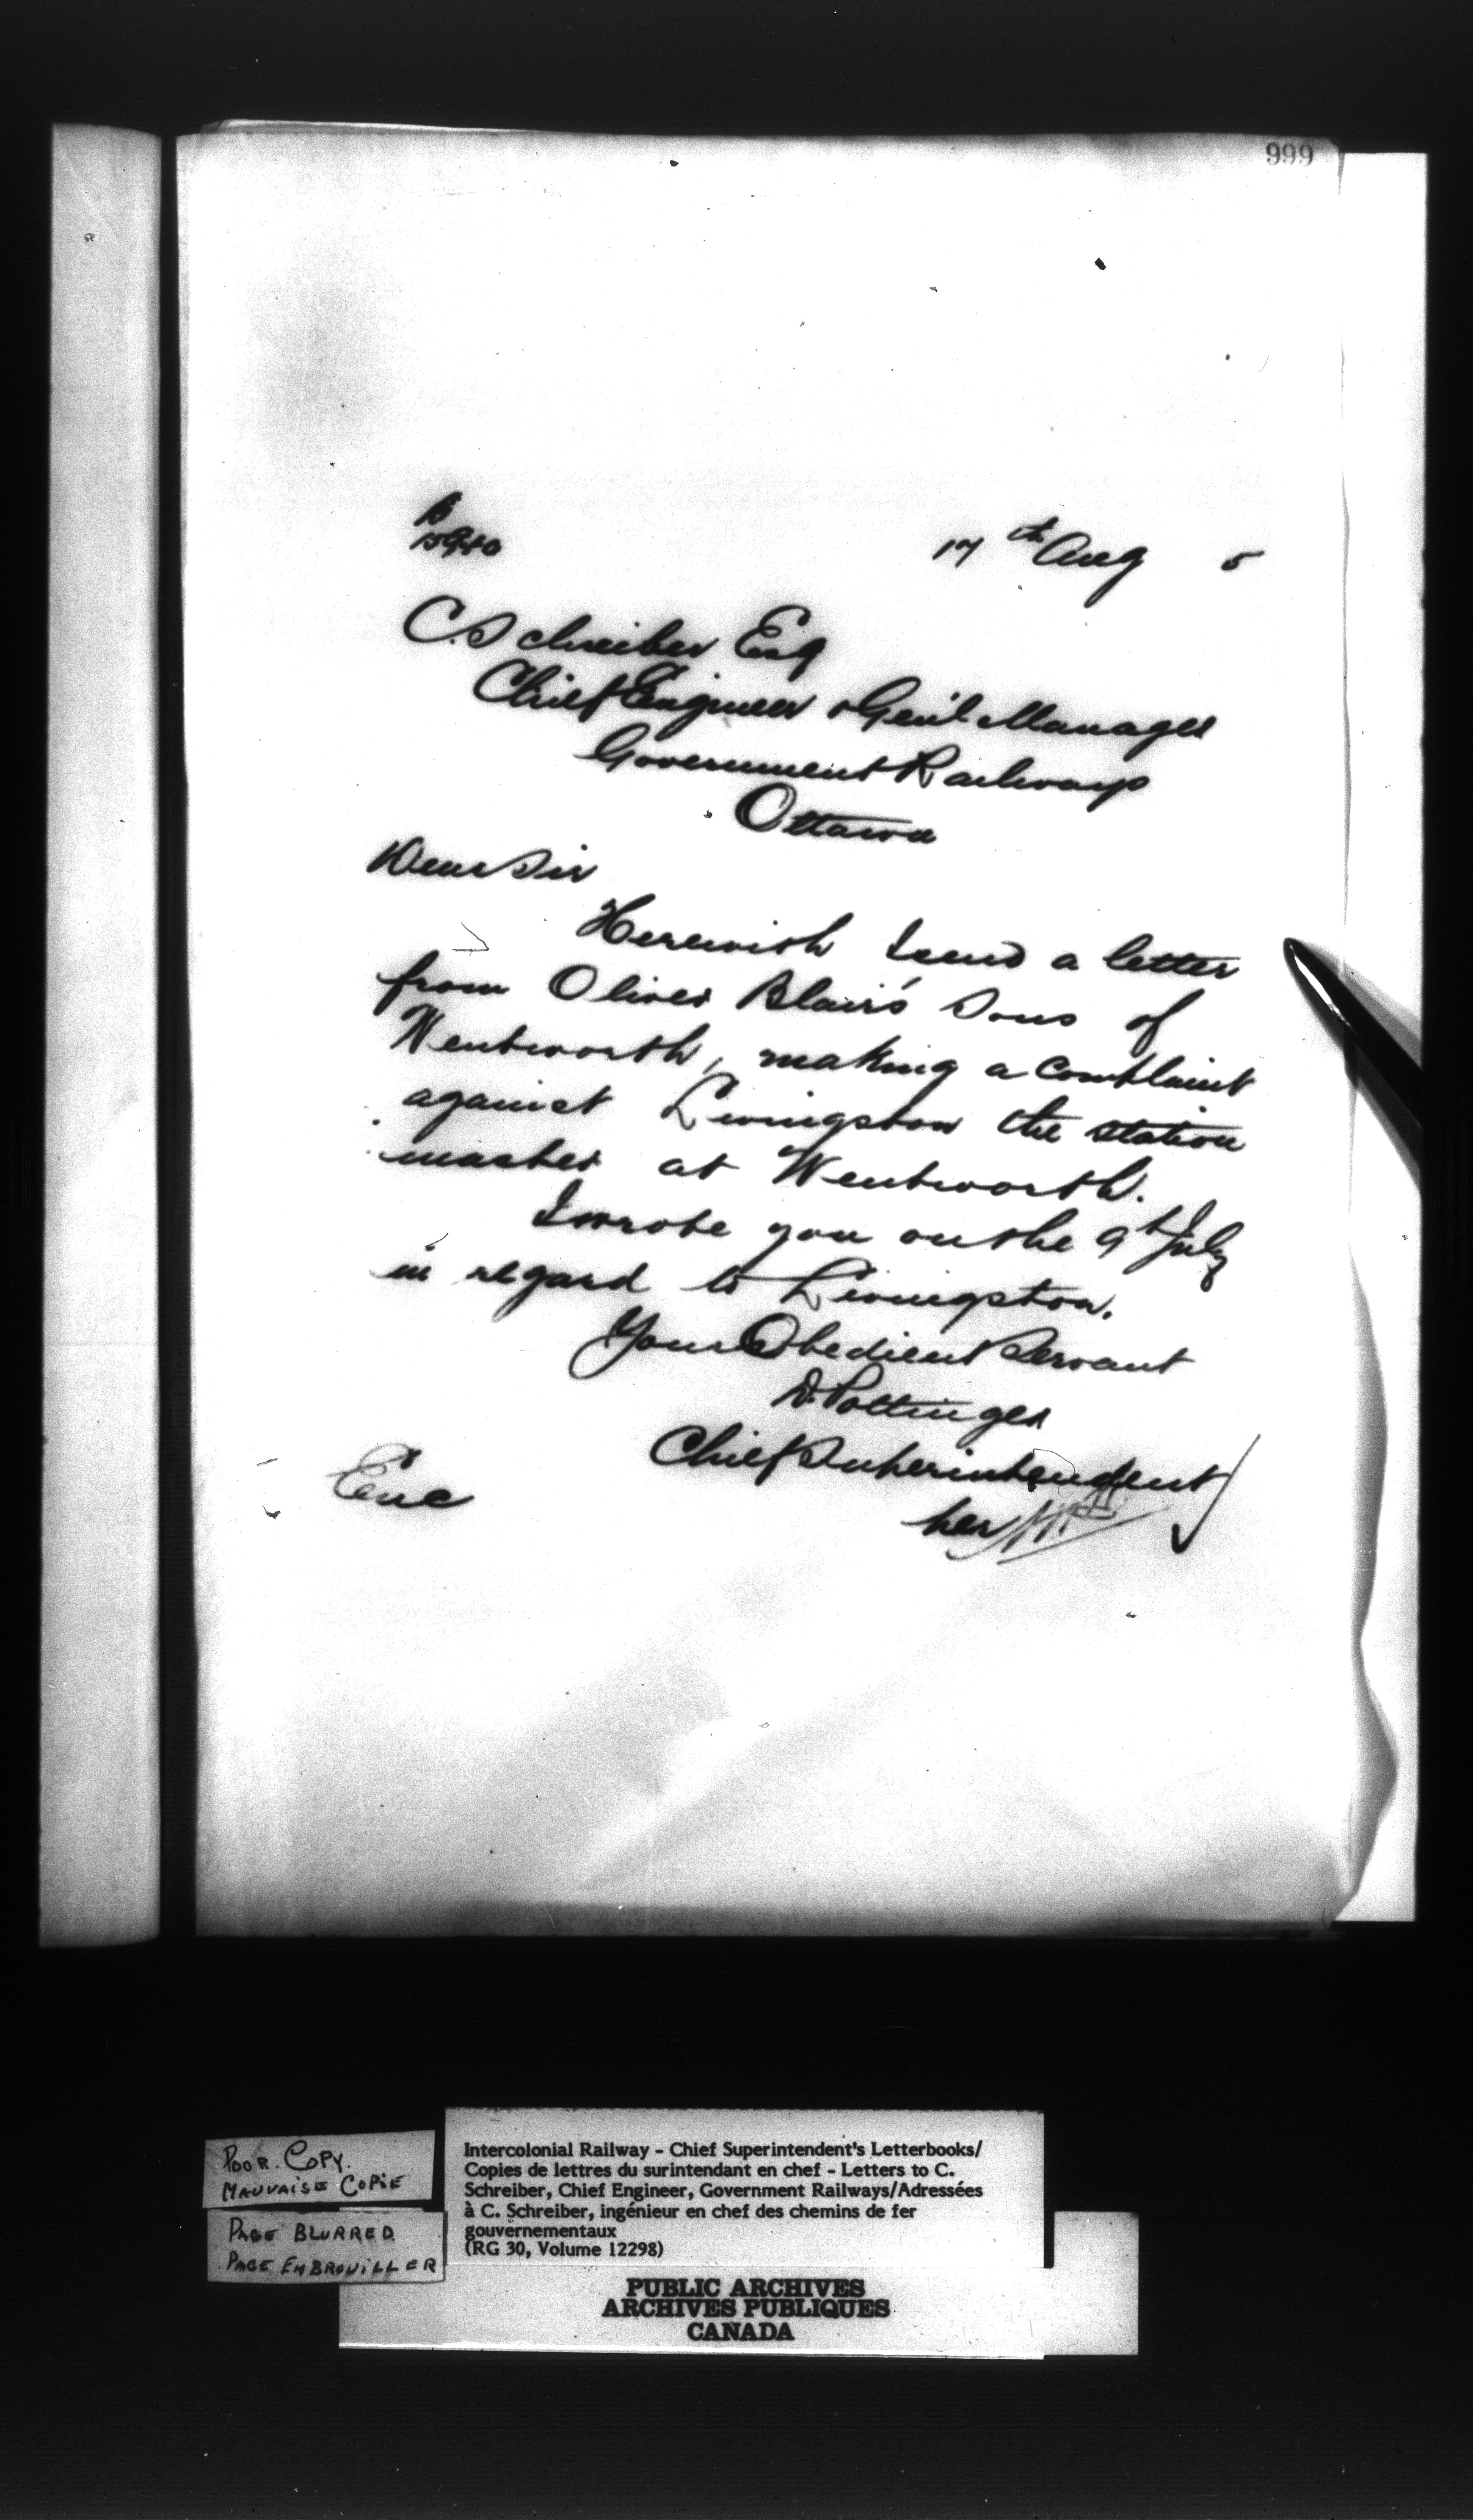 999
B
17th Aug 5
C. Schreiber Esq
Chief Engineer & Gen'l Manager
Government Railways
Ottawa
Dear Sir
Herewith I send a letter
from Oliver Blair's Sons of
Wentworth, making a complaint
against Livingston the station
master at Wentworth.
I wrote you on the 9th July
in regard to Livingston.
Your Obedient Servant
D. Pottinger
Chief Superintendent
Enc
per
POOR. COPY.
MAUVAISE COPIE
PAGE BLURRED
PAGE EMBROUILLER
Intercolonial Railway - Chief Superintendent's Letterbooks/
Copies de lettres du surintendant en chef - Letters to C.
Schreiber, Chief Engineer, Government Railways/Adressées
à C. Schreiber, ingénieur en chef des chemins de fer
gouvernementaux
(RG 30, Volume 12298)
PUBLIC ARCHIVES
ARCHIVES PUBLIQUES
CANADA